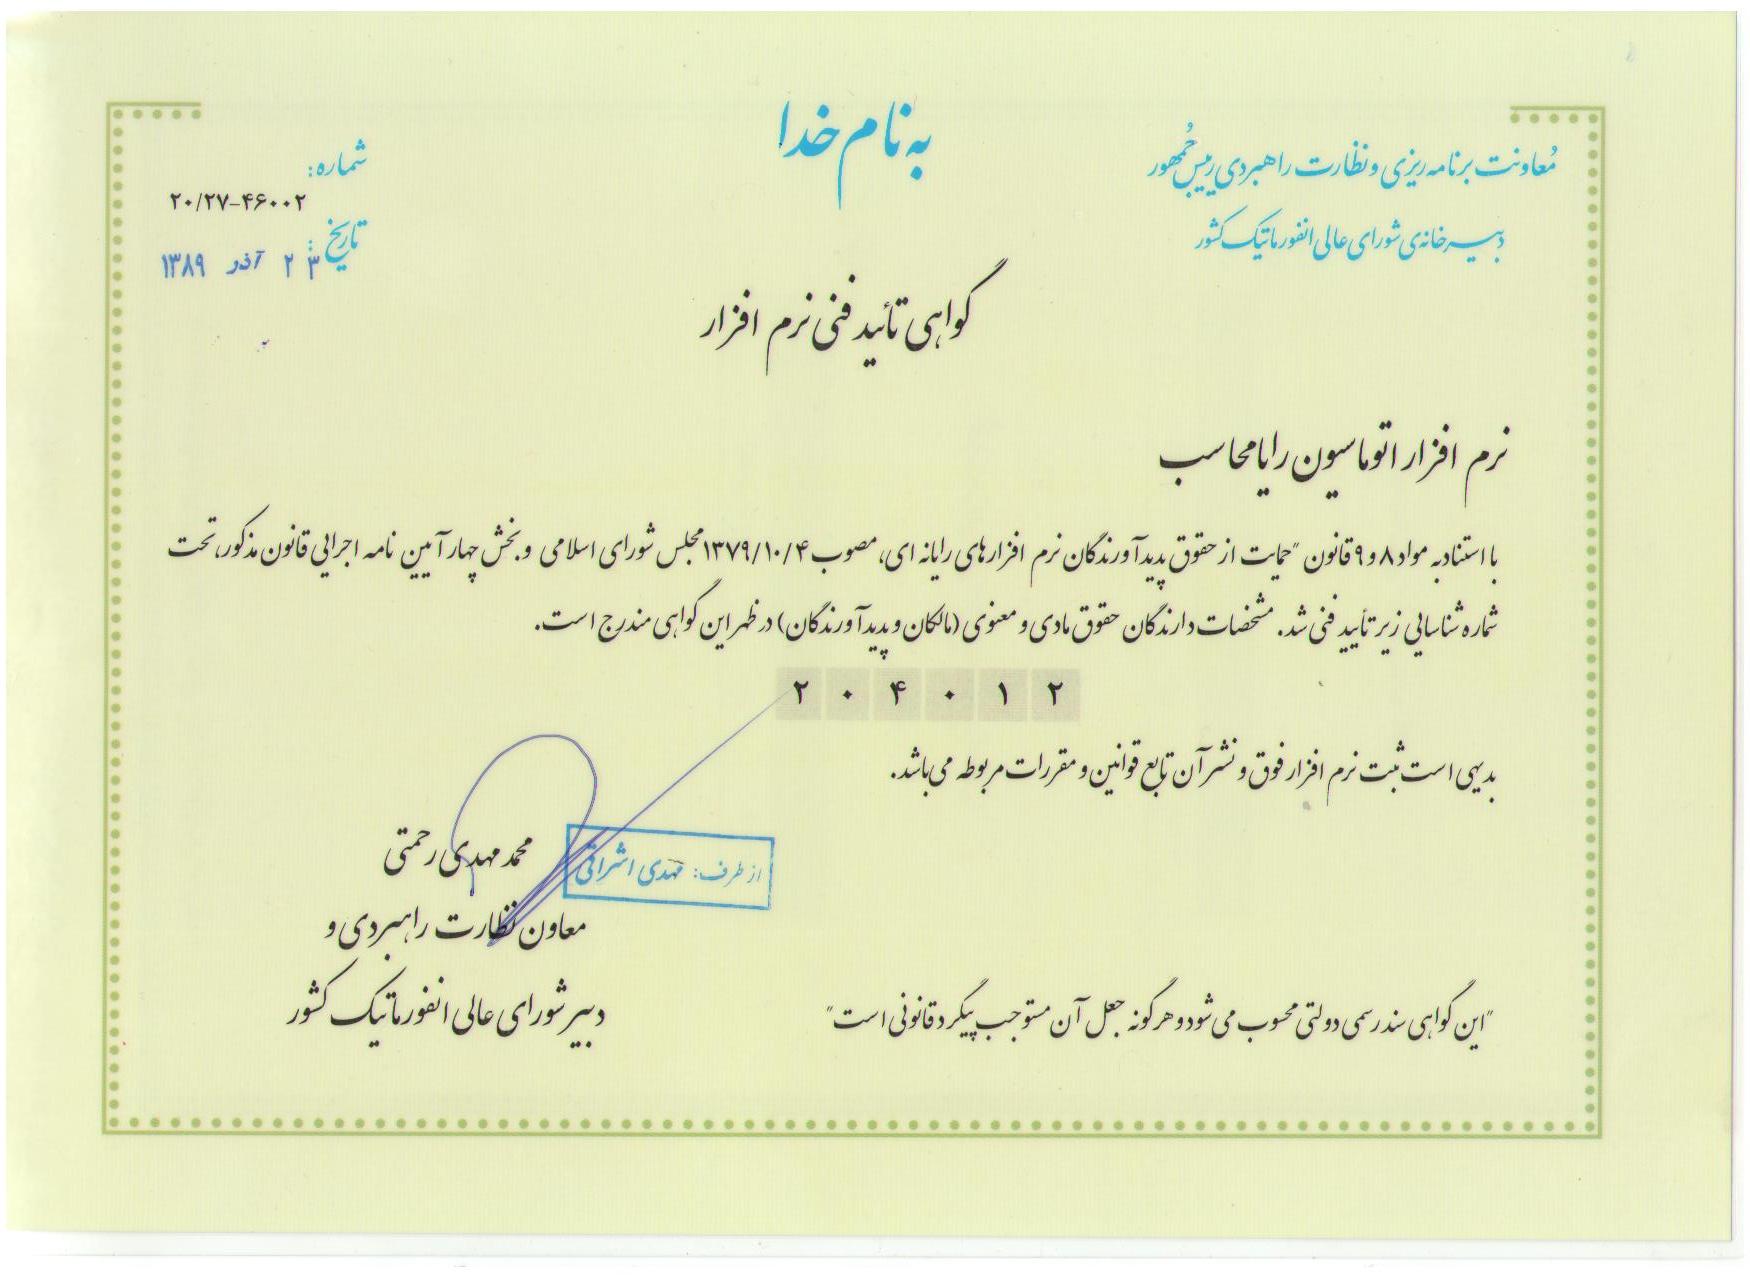 به نام خدا
معاونت برنامه‌ریزی و نظارت راهبردی رییس جمهور
دبیرخانه‌ی شورای عالی انفورماتیک کشور
شماره:
۲۰/۲۷-۴۶۰۰۲
تاریخ:
۲۳ آذر ۱۳۸۹
گواهی تأیید فنی نرم افزار
نرم افزار اتوماسیون رایامحاسب
با استناد به مواد ۸ و ۹ قانون "حمایت از حقوق پدیدآورندگان نرم افزارهای رایانه ای، مصوب ۱۳۷۹/۱۰/۴ مجلس شورای اسلامی و بخش چهار آیین نامه اجرایی قانون مذکور، تحت
شماره شناسایی زیر تأیید فنی شد. مشخصات دارندگان حقوق مادی و معنوی (مالکان و پدیدآورندگان) در ظهر این گواهی مندرج است.
۲ ۰ ۴ ۰ ۱ ۲
بدیهی است ثبت نرم افزار فوق و نشر آن تابع قوانین و مقررات مربوطه می باشد.
از طرف: مهدی اشراقی
محمد مهدی رحمتی
معاون نظارت راهبردی و
دبیر شورای عالی انفورماتیک کشور
"این گواهی سند رسمی دولتی محسوب می شود و هرگونه جعل آن مستوجب پیگرد قانونی است"